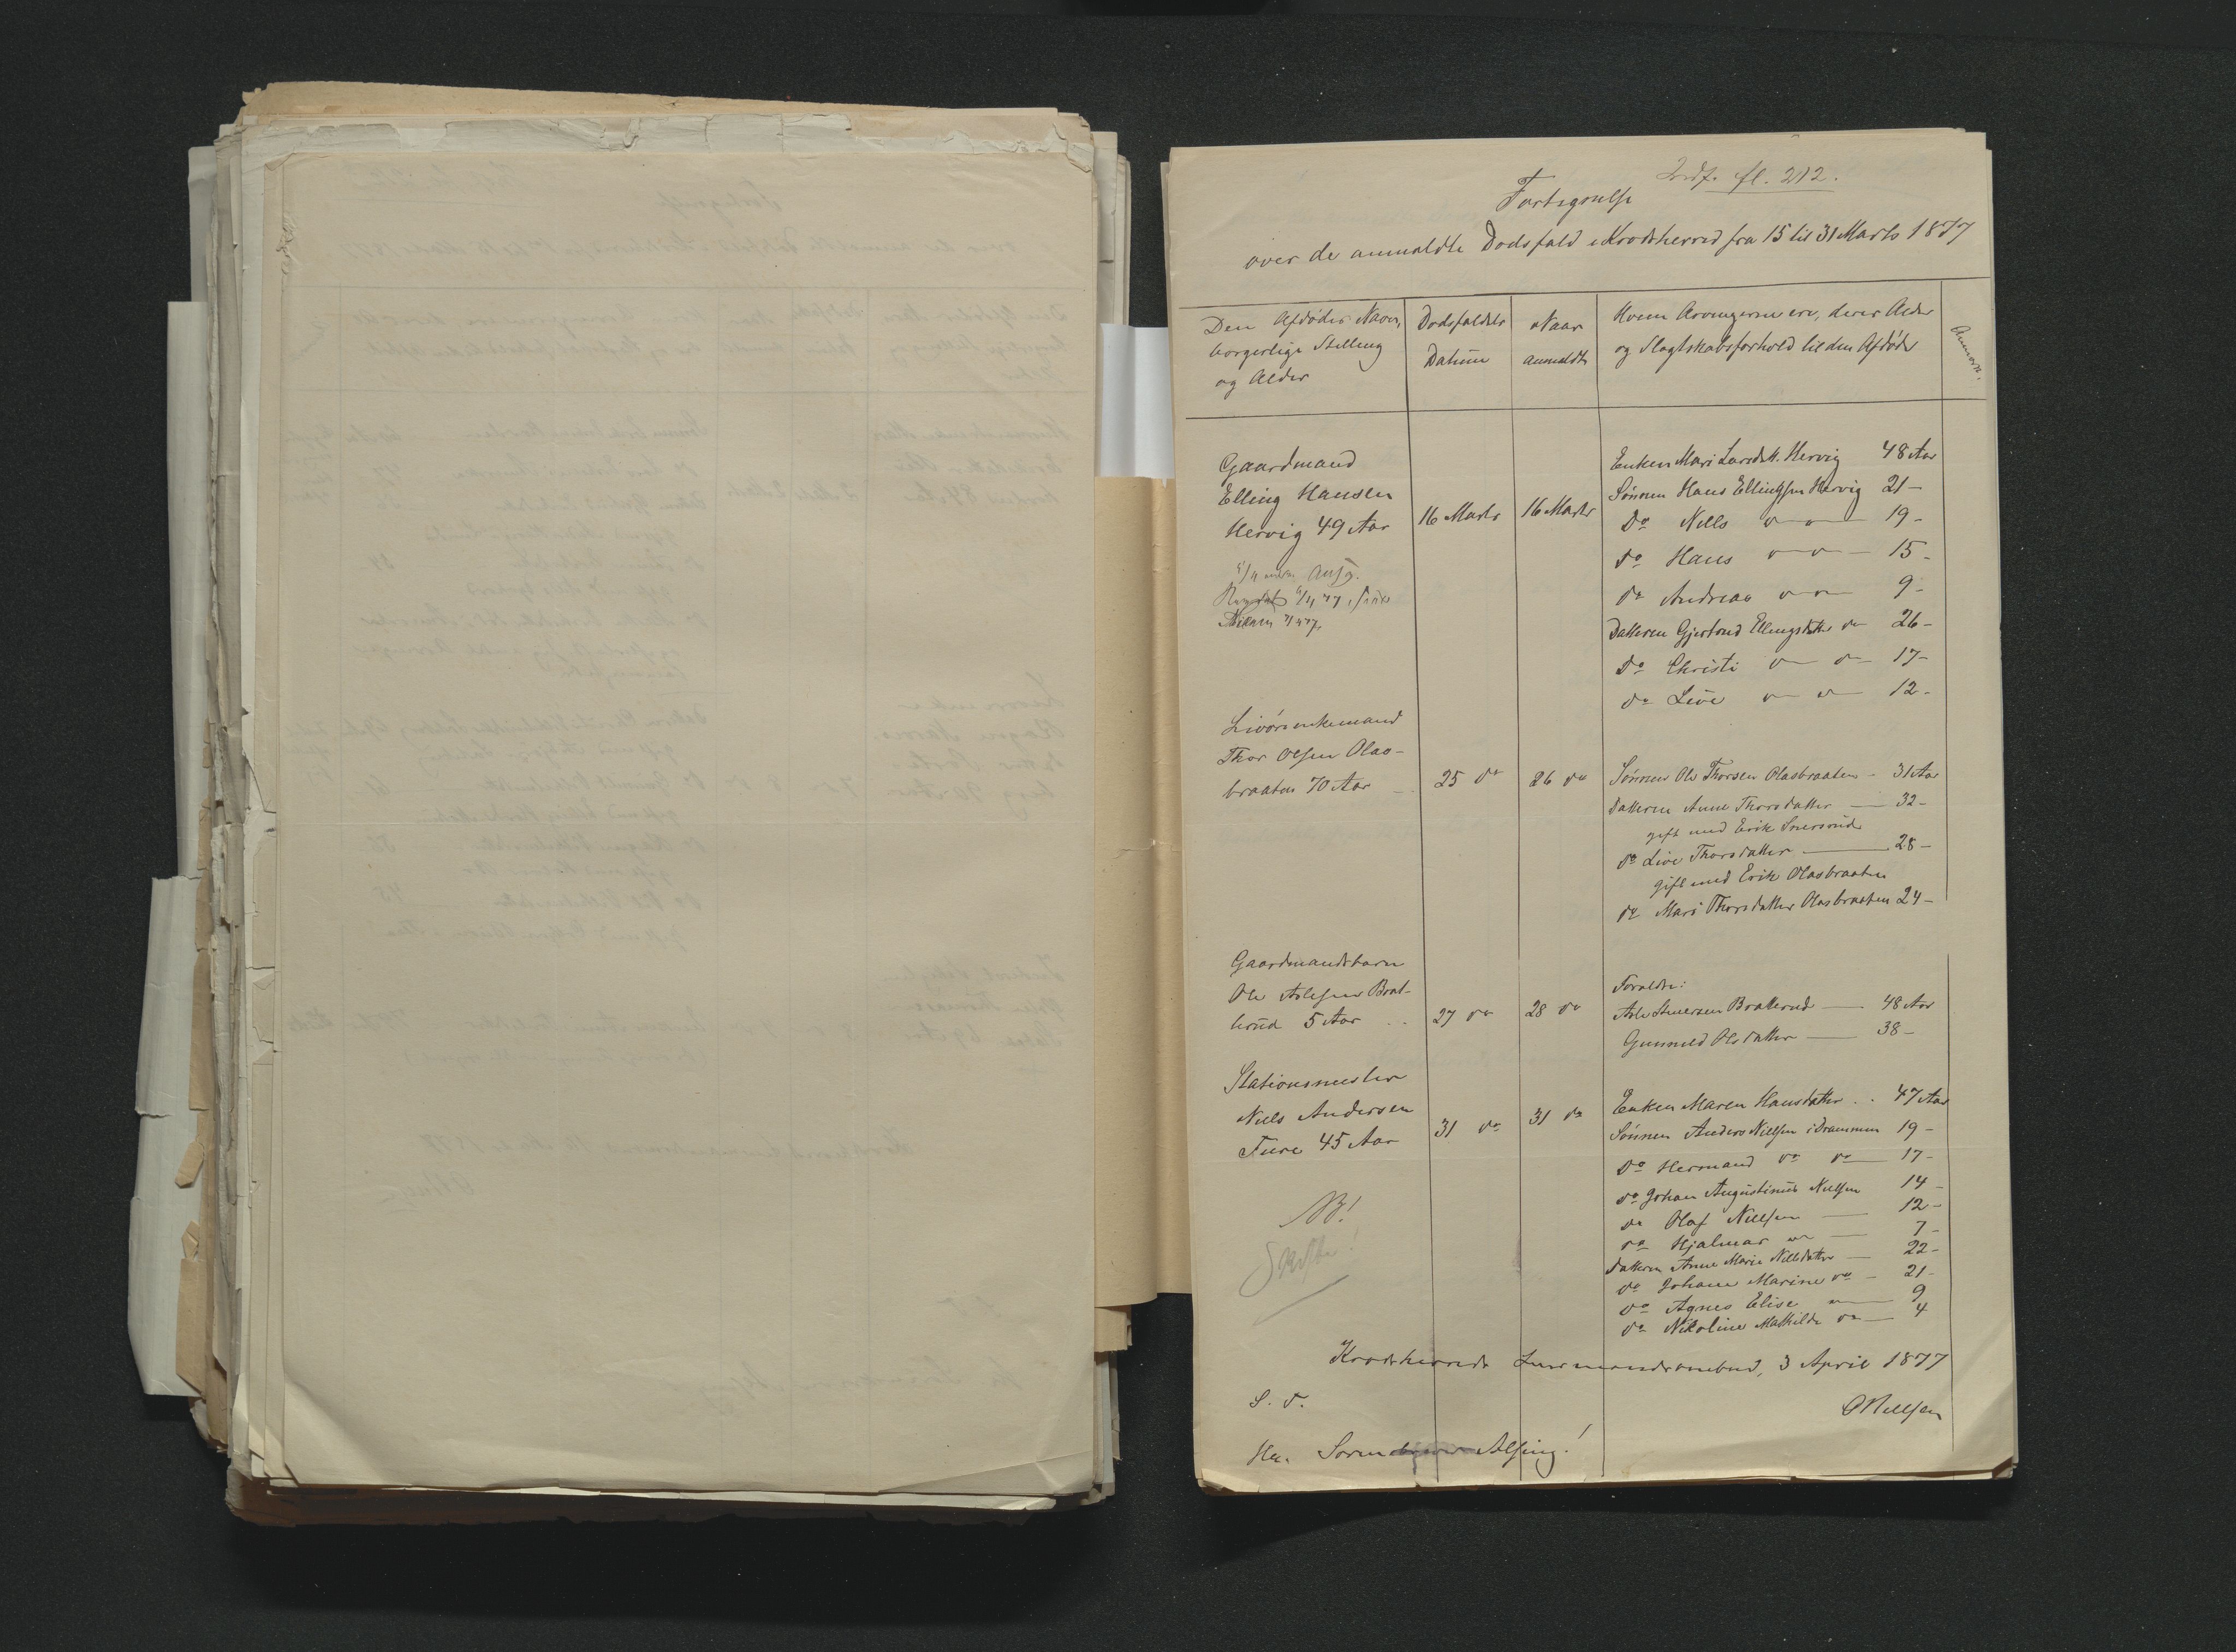 Indf. fl. 212.
Fortegnelse
over de anmeldte Dødsfald i Krødsherred fra 15 til 31 Marts 1877
Den Afdødes Navn,
borgerlige Stilling
og Alder
Dødsfaldets
Datum
Naar
anmeldt
Hvem Arvingerne ere, deres Alder
og Slægtskabsforhold til den Afdøde
Anmærk.
Gaardmand
Elling Hansen
Hervig 49 Aar
16 Marts
16 Marts
Enken Mari Larsdtt. Hervig 48 Aar
Sønnen Hans Ellingsen Hervig 21 —
Do Nells " — " — 19 -
do Hans " — " — 15 -
do Andreas " — " 9 -
Datteren Gjertrud Ellingsdatter " 26 -
Do Christi " — " — 17 -
do Live " — " — 12 -
Livøreenkemand
Thor Olsen Olas-
braaten 70 Aar
25 do
26 do
Sønnen Ole Thorsen Olasbraaten - 31 Aar
Datteren Anne Thorsdatter — 32 -
gift med Erik Snersrud
do Live Thorsdatter — 28 -
gift med Erik Olasbraaten
do Mari Thorsdatter Olasbraaten 24 -
Gaardmandsbarn
Ole Aslesen Brat-
terud 5 Aar ..
27 do
28 do
Forældre:
Asle Knersen Bratterud — 48 Aar
Gunnild Olsdatter — 38 -
Stationsmester
Niels Andersen
Ture 45 Aar
31 do
31 do
Enken Maren Hansdatter .. 47 Aar
Sønnen Anders Nielsen i Drammen 19 -
Do Hermand do do — 17 -
do Johan Augustinus Nielsen 14 -
do Olaf Nielsen — 12 -
do Hjalmar do — 7 -
Datteren Anne Marie Nilsdatter — 22 -
do Johane Marine do — 21 -
do Agnes Elise do — 9
do Nikoline Mathilde do — 4
NB!
Skifte!
Krødsherreds Lensmandsombud, 3 April 1877
S. T.
ONielsen
Hr. Sorenskriver Alsing!